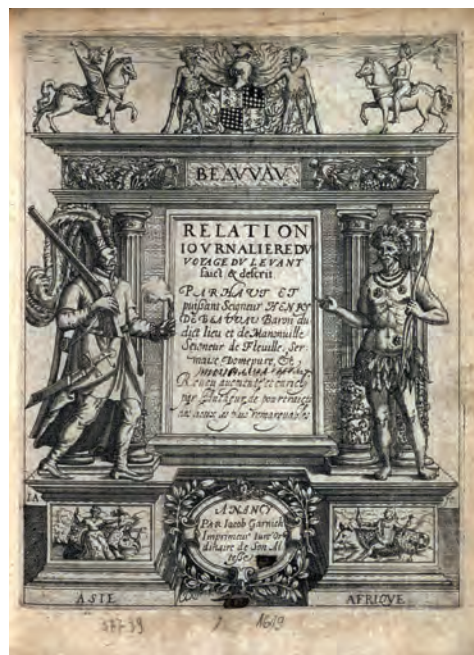 BEAVVAV
RELATION
IOVRNALIERE DV
VOYAGE DV LEVANT
faict & descrit
PAR HAVT ET
puissant Seigneur HENRY
DE BEAVVAV Baron du
dict lieu et de Manonuille
Seigneur de Fleuille, Ser
maise Domepure, &c
Reueu augmenté et enrichy
par l'Autheur de pourtraicts
des lieux les plus remarquables
A NANCY
Par Iacob Garnich
Imprimeur iuré Or
dinaire de Son Al
tesse
ASIE
AFRIQVE
1619